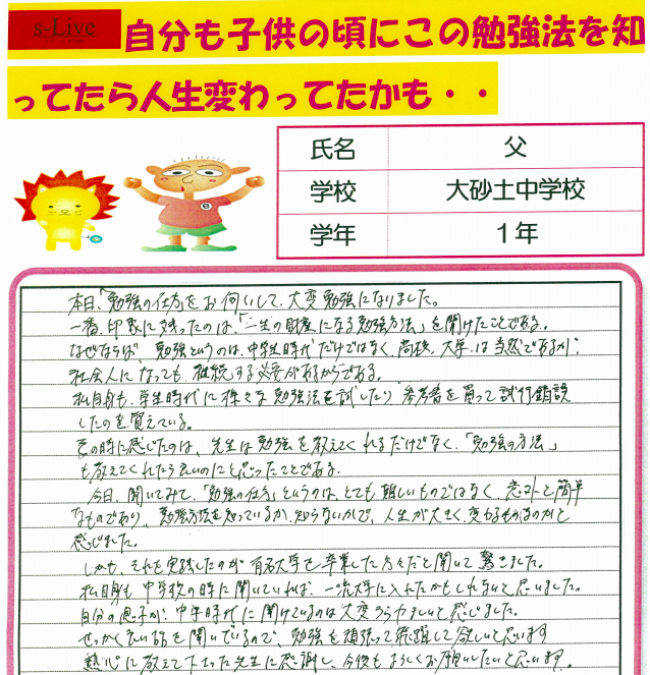 s-Live
自分も子供の頃にこの勉強法を知
ってたら人生変わってたかも・・
氏名 父
学校 大砂土中学校
学年 1年
本日、「勉強の仕方」をお伺いして、大変勉強になりました。
一番、印象に残ったのは、「一生の財産になる勉強方法」を聞けたことである。
なぜならば、勉強というのは、中学生時代だけではなく、高校、大学は当然であるが、
社会人になっても、継続する必要があるからである。
私自身も、学生時代に様々な勉強法を試したり、参考書を買って試行錯誤
したのを覚えている。
その時に感じたのは、先生は勉強を教えてくれるだけでなく、「勉強の方法」
も教えてくれたら良いのにと思ったことである。
今日、聞いてみて、「勉強の仕方」というのは、とても難しいものではなく、意外と簡単
なものであり、勉強方法を知っているか、知らないかで、人生が大きく変わるものと
感じました。
しかも、それを実践したのが有名大学を卒業した方々だと聞いて驚きました。
私自身も中学校の時に聞いていれば、一流大学に入れたかもしれないと思いました。
自分の息子が、中学時代に聞けているのは大変うらやましいと感じました。
せっかく良い話を聞いているので、勉強を頑張って飛躍して欲しいと思います
熱心に教えて下さった先生に感謝し、今後もよろしくお願いしたいと思います。